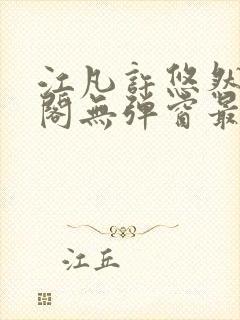 江凡許悠然
閣無彈窗最
江丘